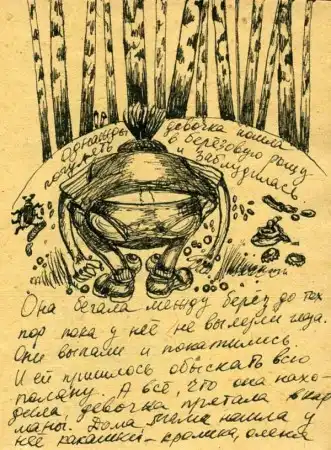 Однажды девочка пошла
погулять в берёзовую рощу
заблудилась
Она бегала между берёз до тех
пор пока у неё не вылезли глаза.
Они выпали и покатились.
И ей пришлось обыскать всю
поляну. А всё, что она нахо-
дила, девочка прятала в кар
маны. Дома мама нашла у
неё какашки – кролика, оленя